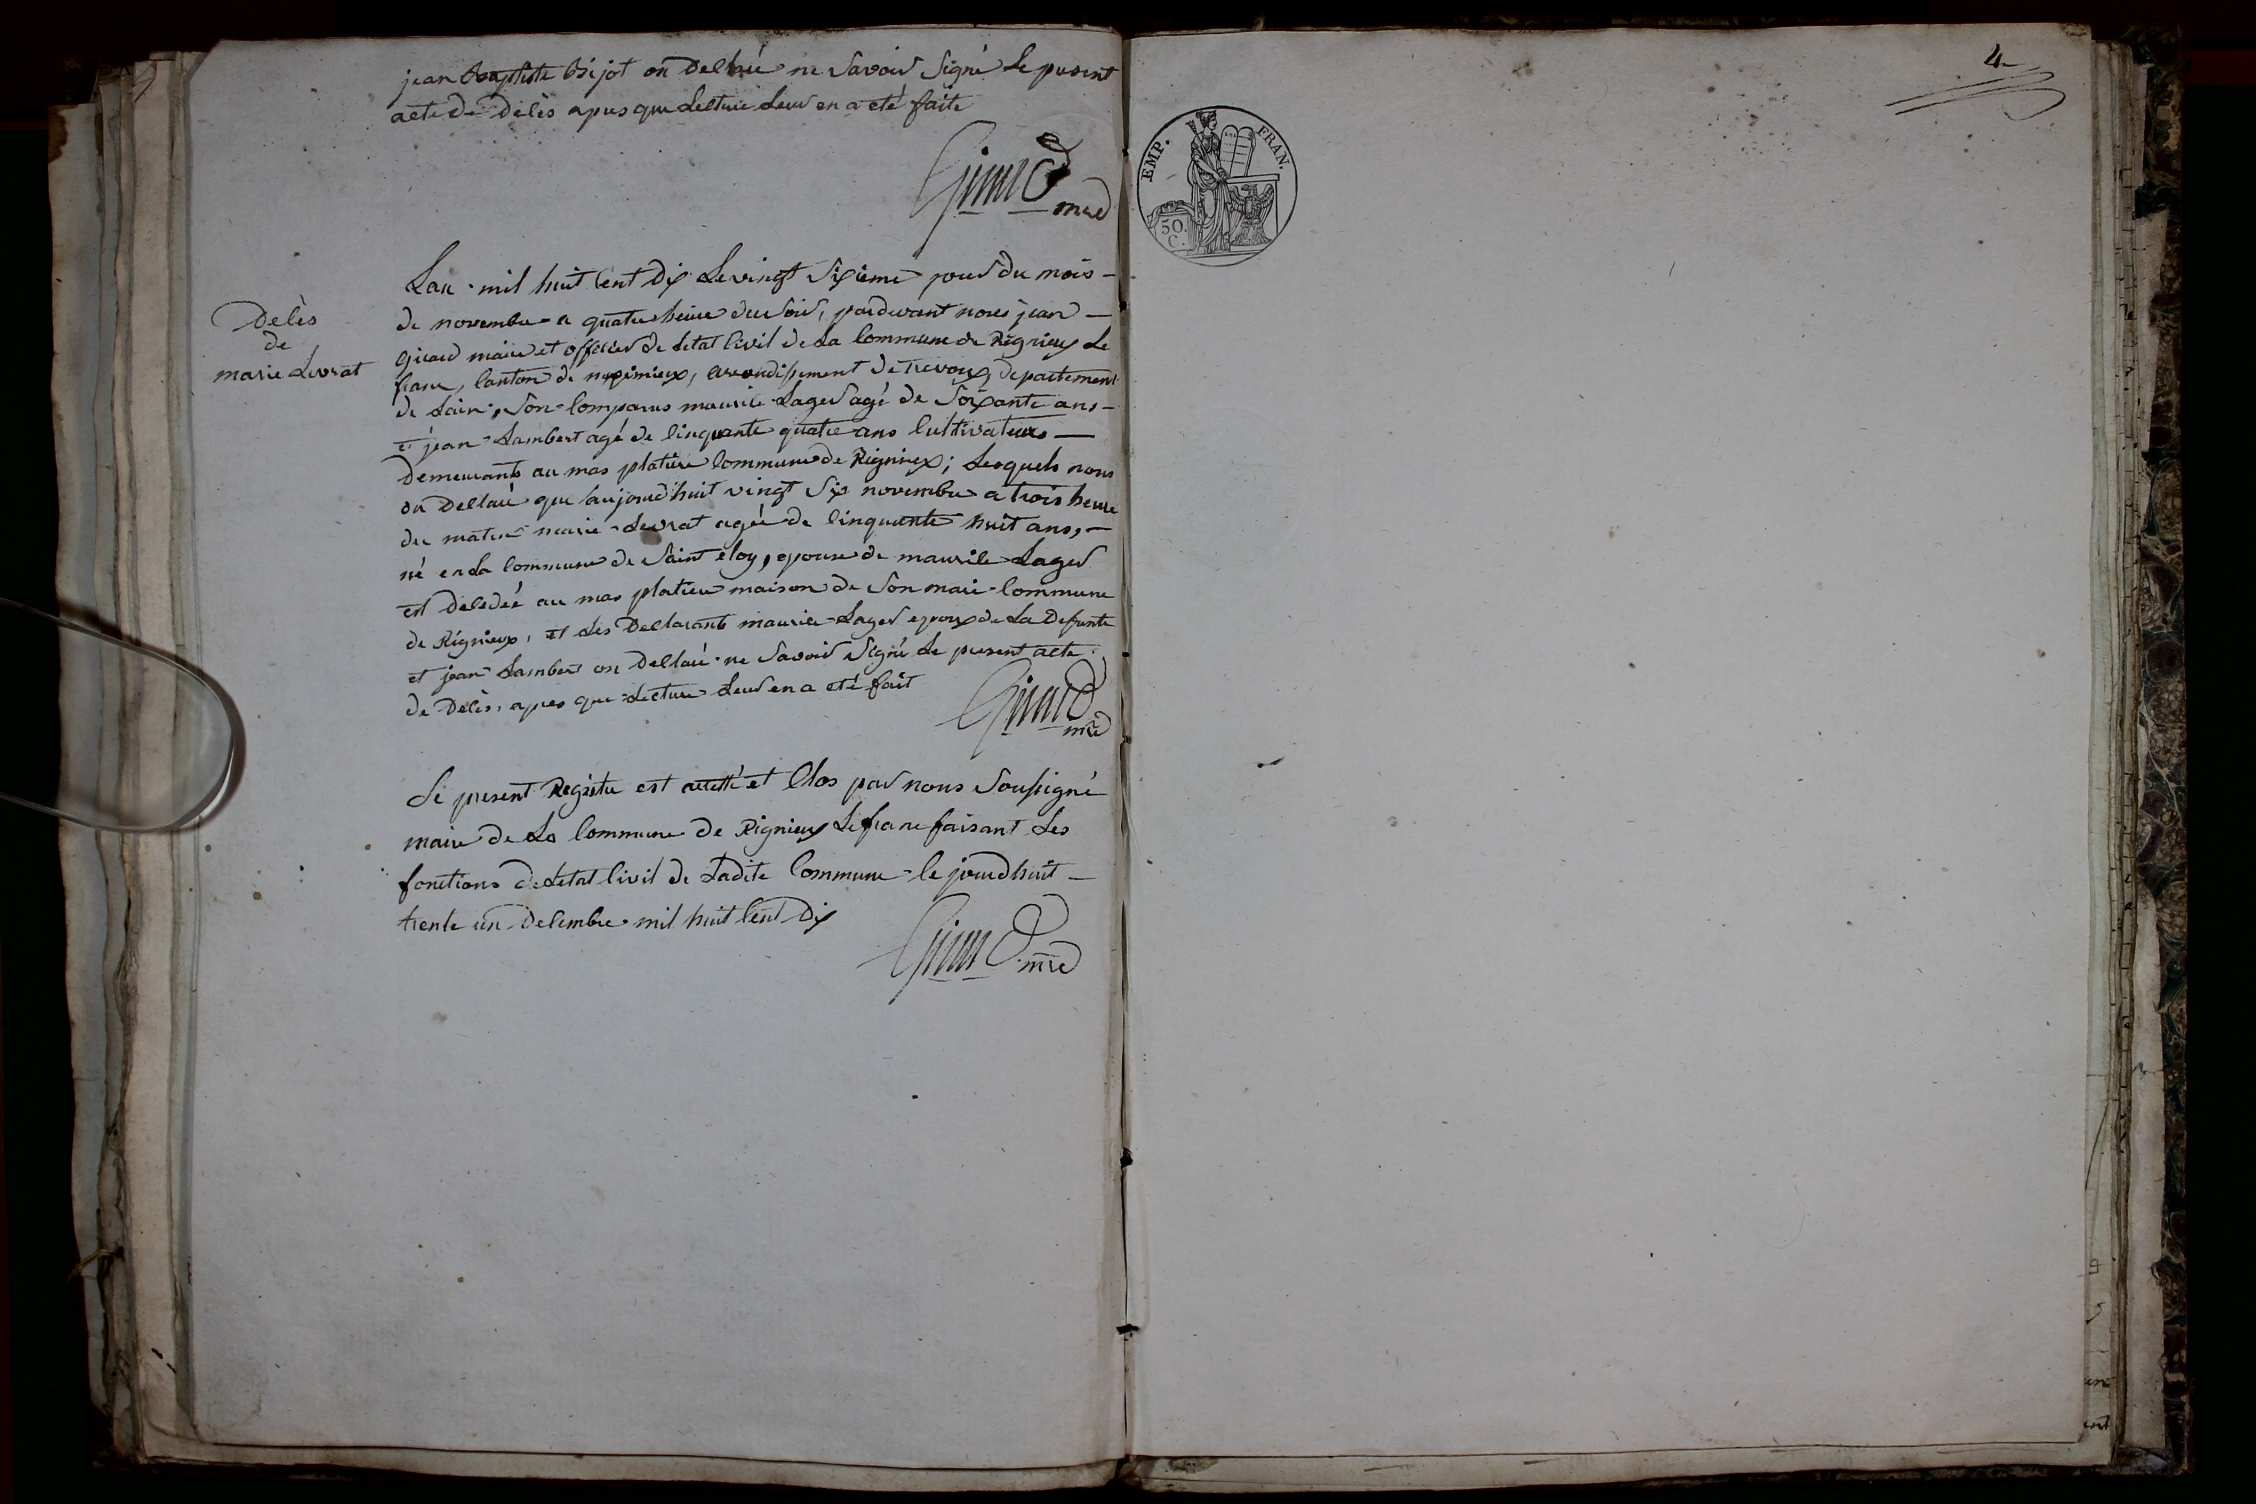 jean Baptiste Bijot on Declaré ne savoir signé Le present
acte de Décès apres que Lecture Leur en a eté faite
Girard
mre
Lan mil huit Cent Dix Le vingt sixieme jour du mois
de novembre a quatre heure du soir, pardevant nous jean
Girard maire et officier de Letat Civil de La Commune de Rignieux Le
franc, Canton de meximieux, arrondissement de Trevoux, departement
de Lain, son Comparus maurice Lager agé de soixante ans
et jean Lambert agé de Cinquante quatre ans Cultivateurs
Demeurants au mas platiere Commune de Rignieux; Lesquels nous
on Declaré que aujourdhuit vingt six novembre a trois heure
du matin marie Levrat agée de Cinquante huit ans,
né en La Commune de saint eloy, epouse de maurice Lager
est Decedeé au mas platiere maison de son mari Commune
de Rignieux, et Les Declarants maurice Lager epoux de La Defunte
et jean Lambert on Declaré ne savoir signé Le present acte
de Décès, apres que Lecture Leur en a eté fait
Girard
mre
Décès
de
marie Levrat
Le present Registre est arretté et Clos par nous soussigné
maire de La Commune de Rignieux Le franc faisant Les
fonctions de Letat Civil de Ladite Commune ce jourdhuit
trente un Decembre mil huit Cent Dix
Girard
mre
4
EMP. FRAN.
50
C.